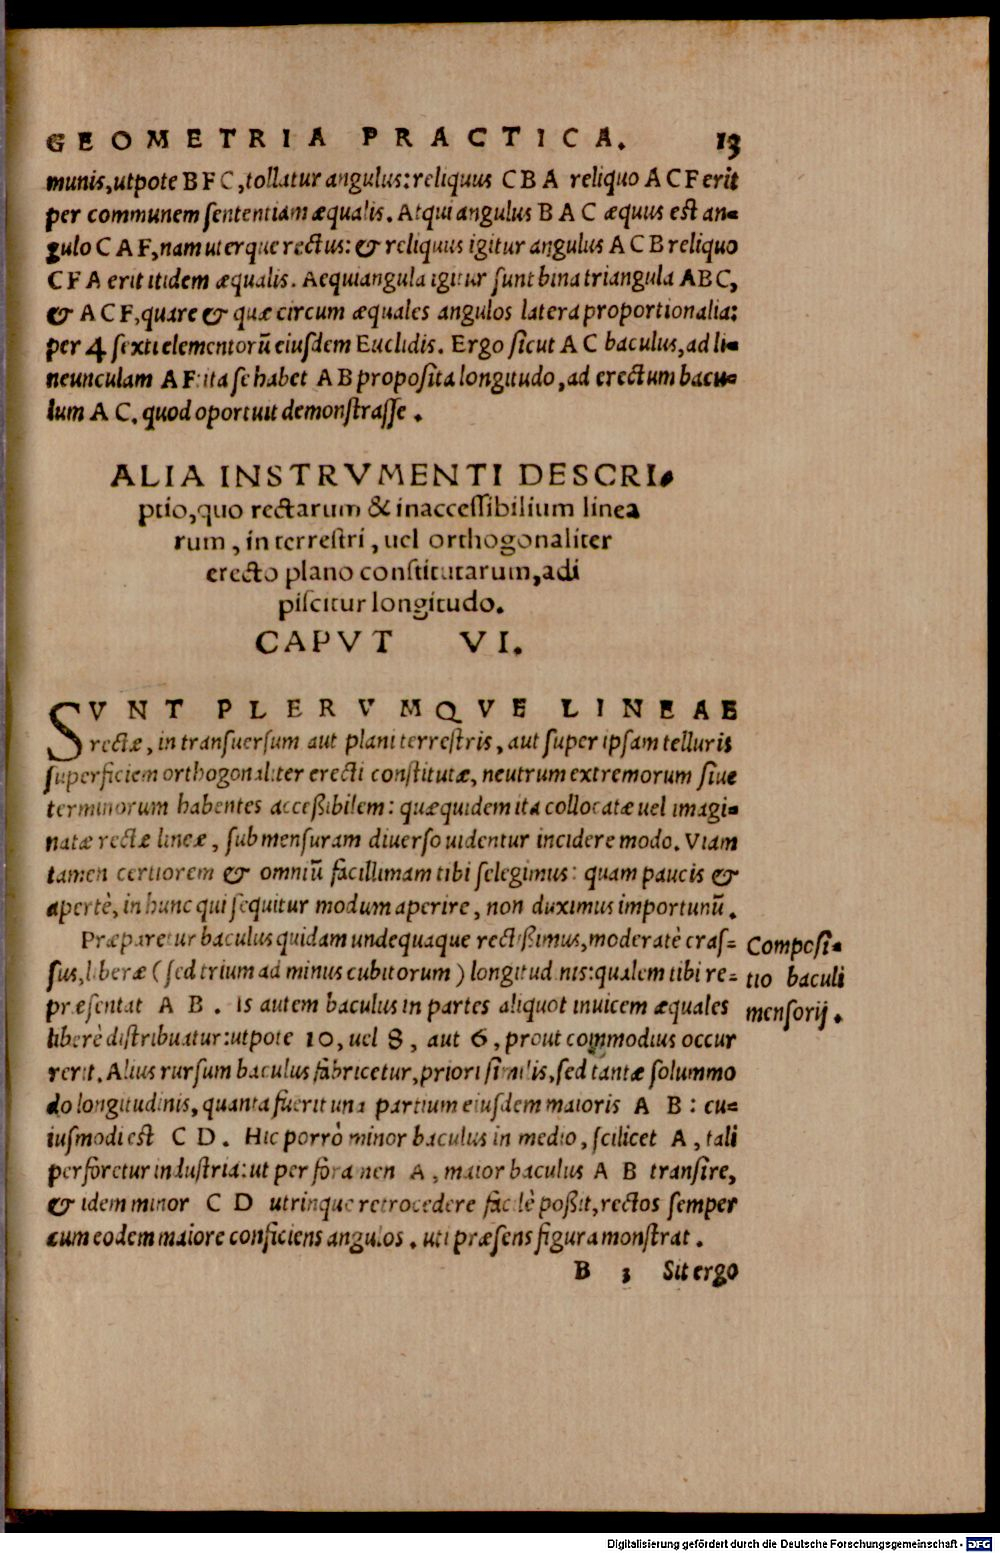 GEOMETRIA PRACTICA. 13
munis, utpote B F C, tollatur angulus: reliquus C B A reliquo A C F erit
per communem sententiam æqualis. Atqui angulus B A C æquus est an=
gulo C A F, nam uterque rectus: & reliquus igitur angulus A C B reliquo
C F A erit itidem æqualis. Aequiangula igitur sunt bina triangula A B C,
& A C F, quare & quæ circum æquales angulos latera proportionalia:
per 4 sexti elementorū eiusdem Euclidis. Ergo sicut A C baculus, ad li=
neunculam A F: ita se habet A B proposita longitudo, ad erectum bacu=
lum A C. quod oportuit demonstrasse.
ALIA INSTRVMENTI DESCRI=
ptio, quo rectarum & inaccessibilium linea
rum, in terrestri, uel orthogonaliter
erecto plano constitutarum, adi
piscitur longitudo.
CAPVT VI.
SVNT PLERVMQVE LINEAE
rectæ, in transuersum aut plani terrestris, aut super ipsam telluris
superficiem orthogonaliter erecti constitutæ, neutrum extremorum siue
terminorum habentes accessibilem: quæquidem ita collocatæ uel imagi=
natæ rectæ lineæ, sub mensuram diuerso uidentur incidere modo. Viam
tamen certiorem & omniū facillimam tibi selegimus: quam paucis &
apertè, in hunc qui sequitur modum aperire, non duximus importunū.
Præparetur baculus quidam undequaque rectissimus, moderatè cras=
sus, liberæ (sed trium ad minus cubitorum) longitudinis: qualem tibi re=
præsentat A B. is autem baculus in partes aliquot inuicem æquales
liberè distribuatur: utpote 10, uel 8, aut 6, prout commodius occur
rerit. Alius rursum baculus fabricetur, priori similis, sed tantæ solummo
do longitudinis, quanta fuerit una partium eiusdem maioris A B: cu=
iusmodi est C D. Hic porrò minor baculus in medio, scilicet A, tali
perforetur industria: ut per foramen A, maior baculus A B transire,
& idem minor C D utrinque retrocedere facilè possit, rectos semper
cum eodem maiore conficiens angulos. uti præsens figura monstrat.
Composi=
tio baculi
mensorij.
B 3 Sit ergo
Digitalisierung gefördert durch die Deutsche Forschungsgemeinschaft - DFG